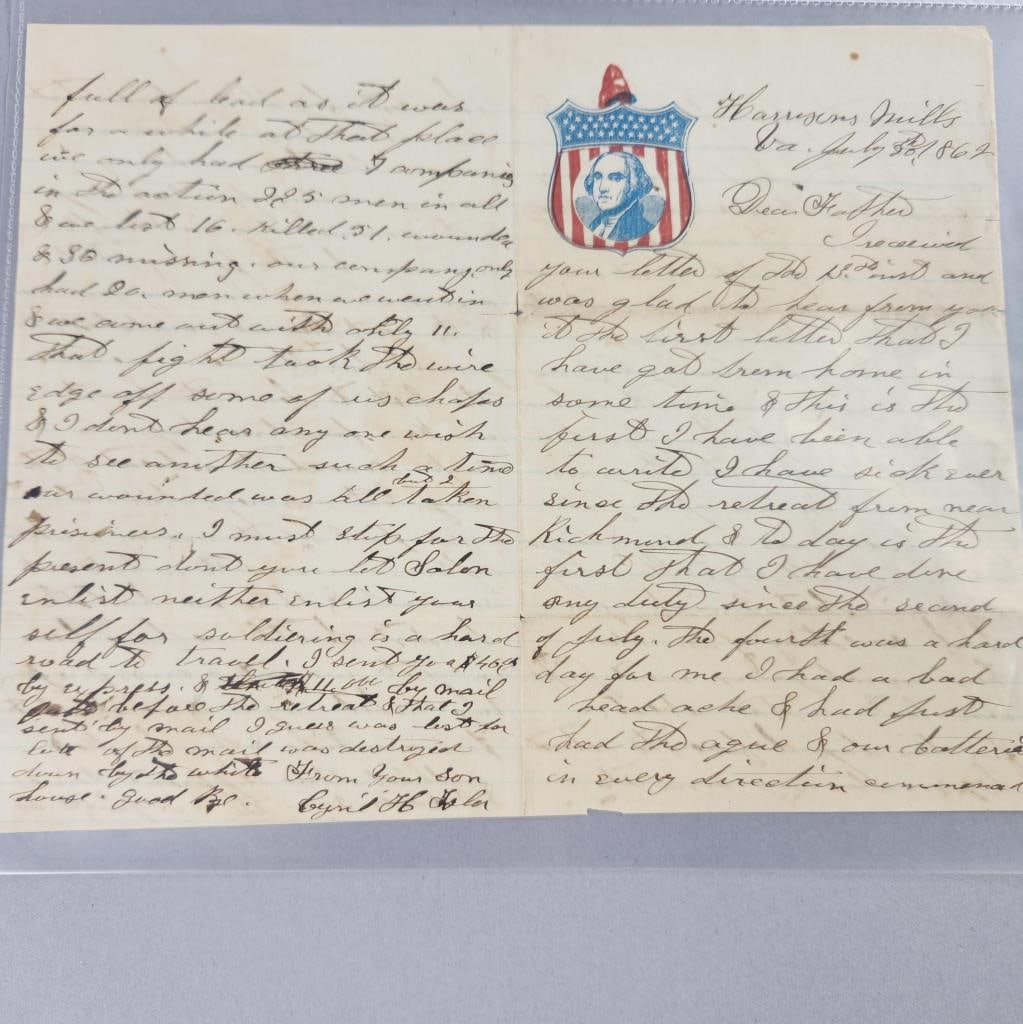 Harrisons Mills
Va. July 30th 1862
Dear Father
I received
your letter of the inst and
was glad to hear from you
it the first letter that I
have got from home in
some time & this is the
first I have been able
to write I have sick ever
since the retreat from near
Richmond & to day is the
first that I have done
any duty since the second
of July. the fourth was a hard
day for me I had a bad
head ache & had just
had the ague & our batterie
in every direction commenced
full of lead as it was
for a while at that place
we only had 7 companies
in the action 225 men in all
& we lost 16. killed 51. wounded
& 30 missing. our company only
had 20. men when we went in
& we come out with only 11.
that fight took the wire
edge off some of us chaps
& I dont hear any one wish
to see another such a time
our wounded was all but 2 taken
prisiners.. I must stop for the
present dont you let Solon
enlist neither enlist your
self for soldiering is a hard
road to travel. I sent you $40.00
by express. & $11.00 by mail
before the retreat & that I
sent by mail I guess was lost for
all of the mail was destroyed
down by the white
house. good Bye.
From Your son
Cyril H